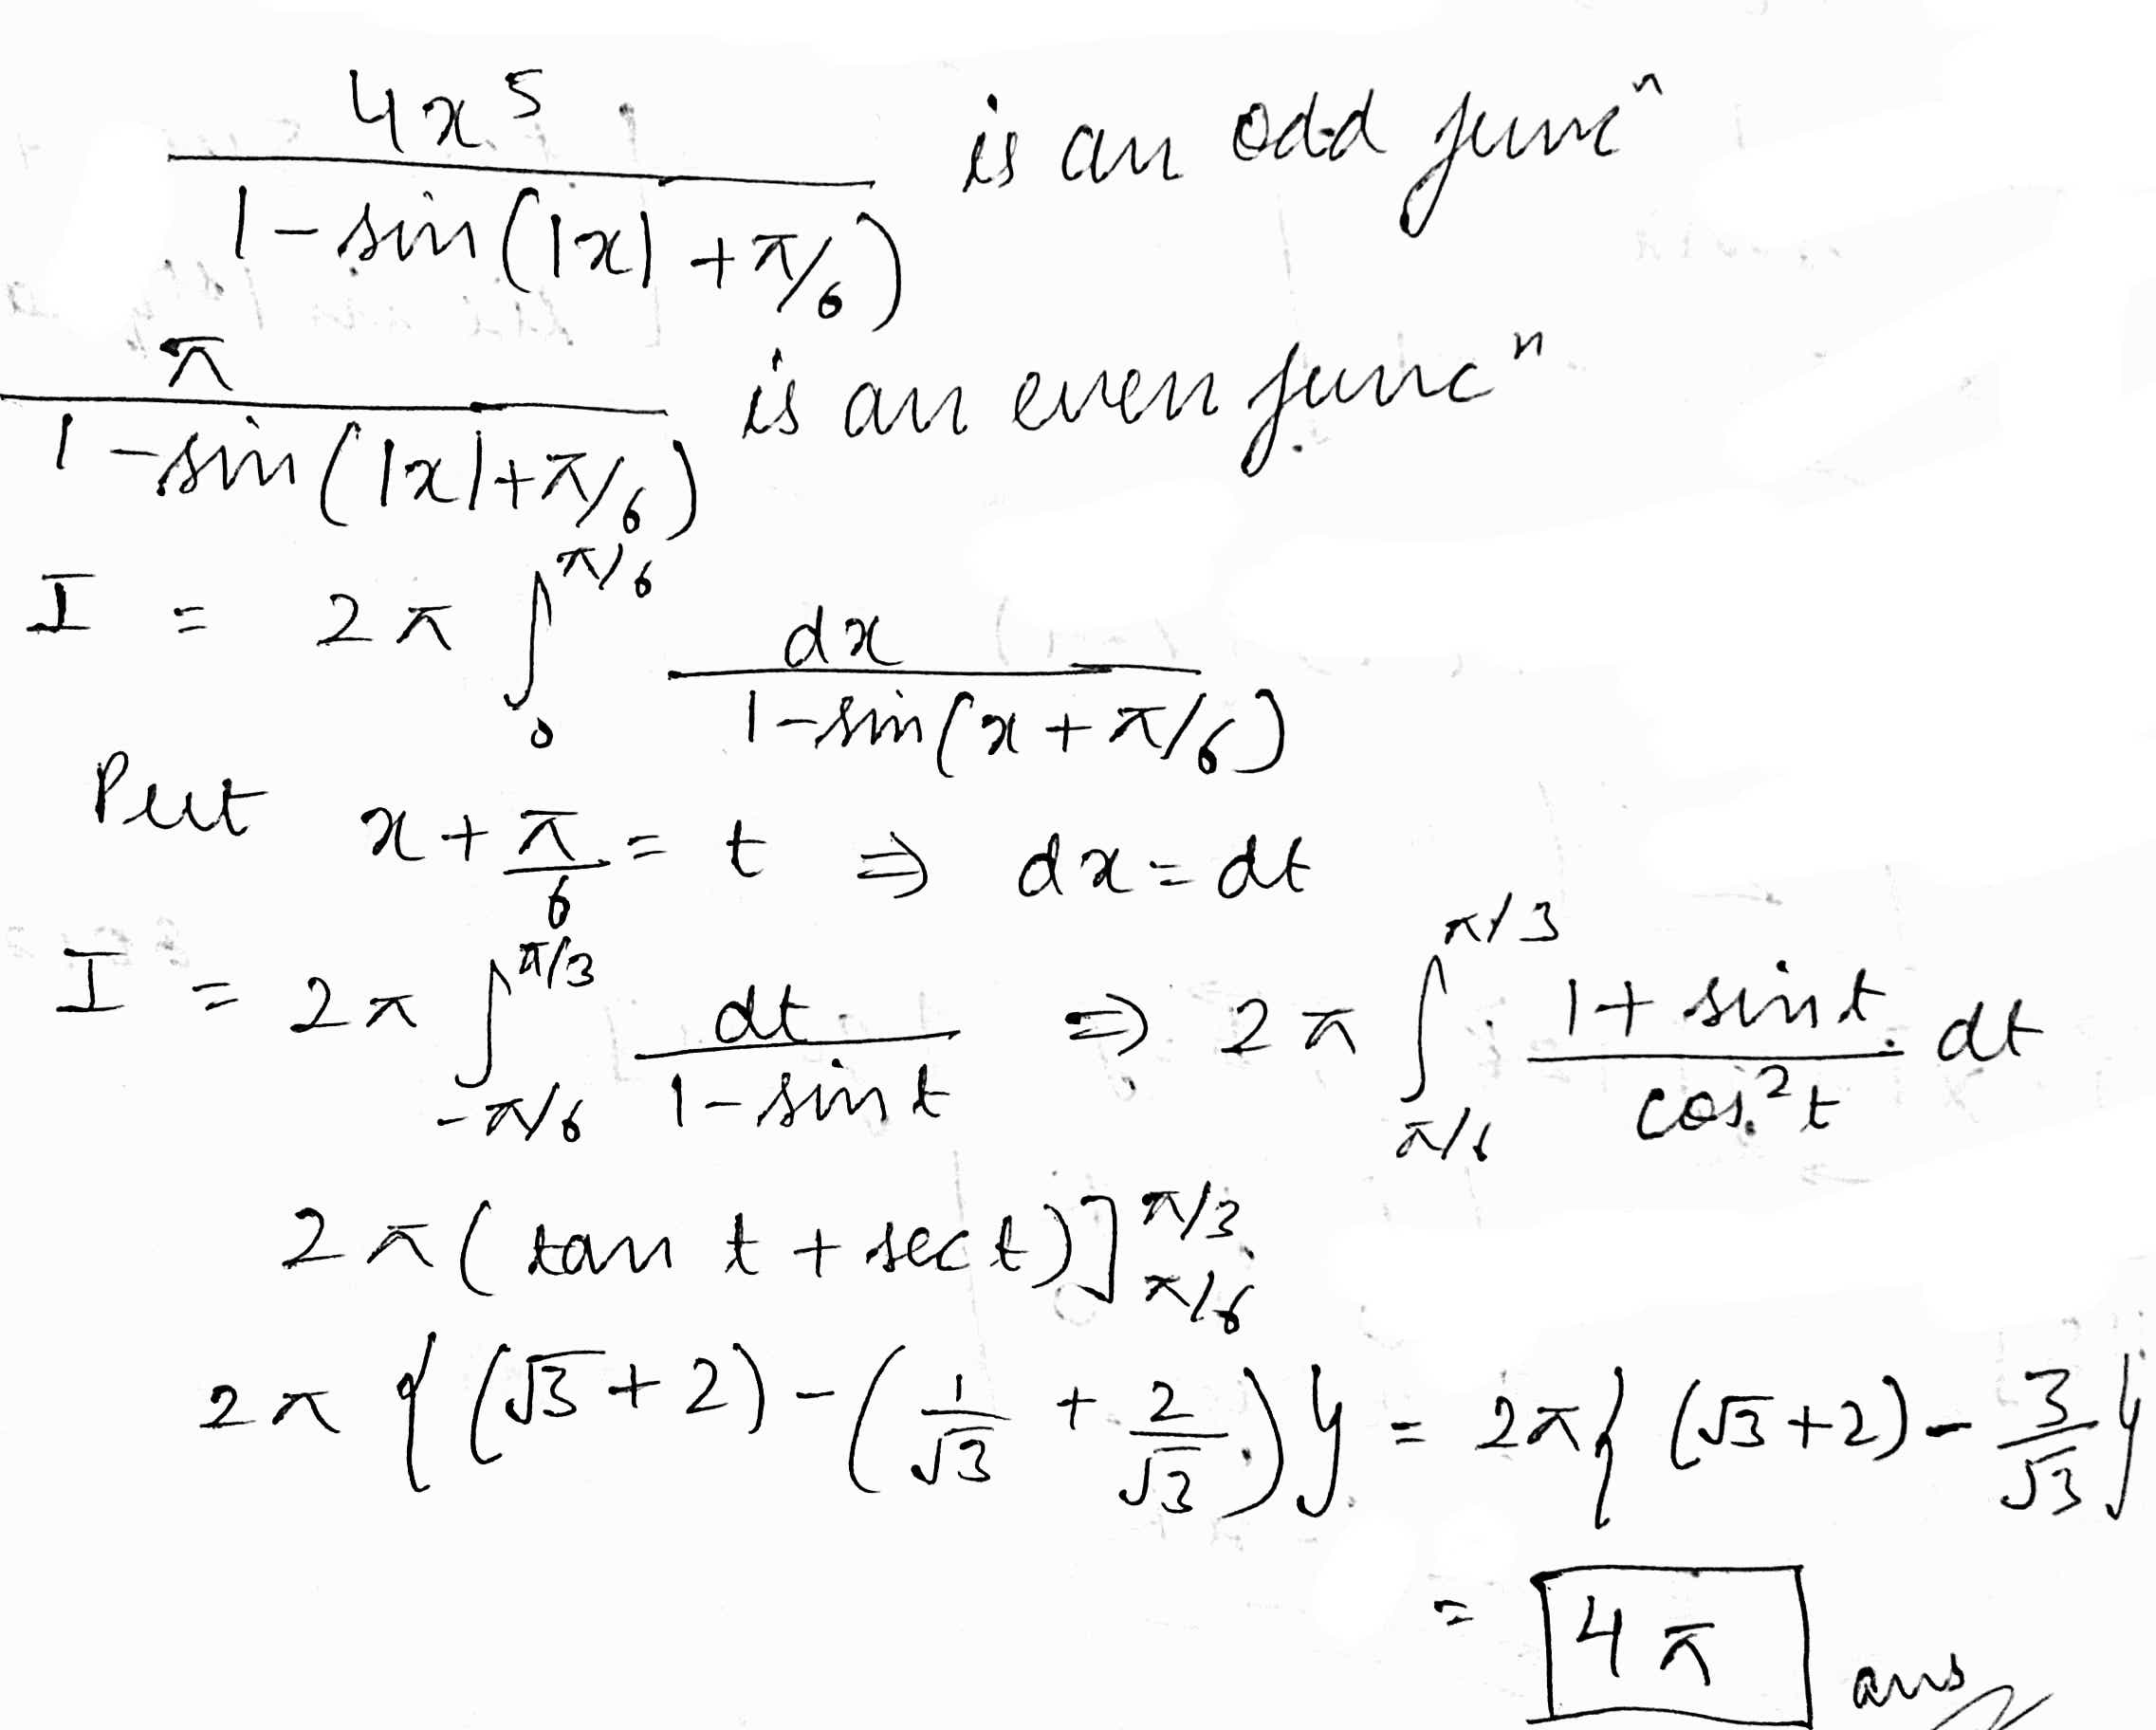 4x⁵ / 1-sin(|x|+π/6) is an odd funcⁿ
π / 1-sin(|x|+π/6) is an even funcⁿ
I = 2π ∫₀^{π/6} dx / 1-sin(x+π/6)
Put x+π/6 = t ⇒ dx=dt
I = 2π ∫_{-π/6}^{π/3} dt / 1-sint ⇒ 2π ∫_{π/6}^{π/3} 1+sint / cos²t dt
2π(tan t + sec t)]_{π/6}^{π/3}
2π {(√3+2)-(1/√3 + 2/√3)} = 2π{(√3+2)-3/√3}
= 4π ans